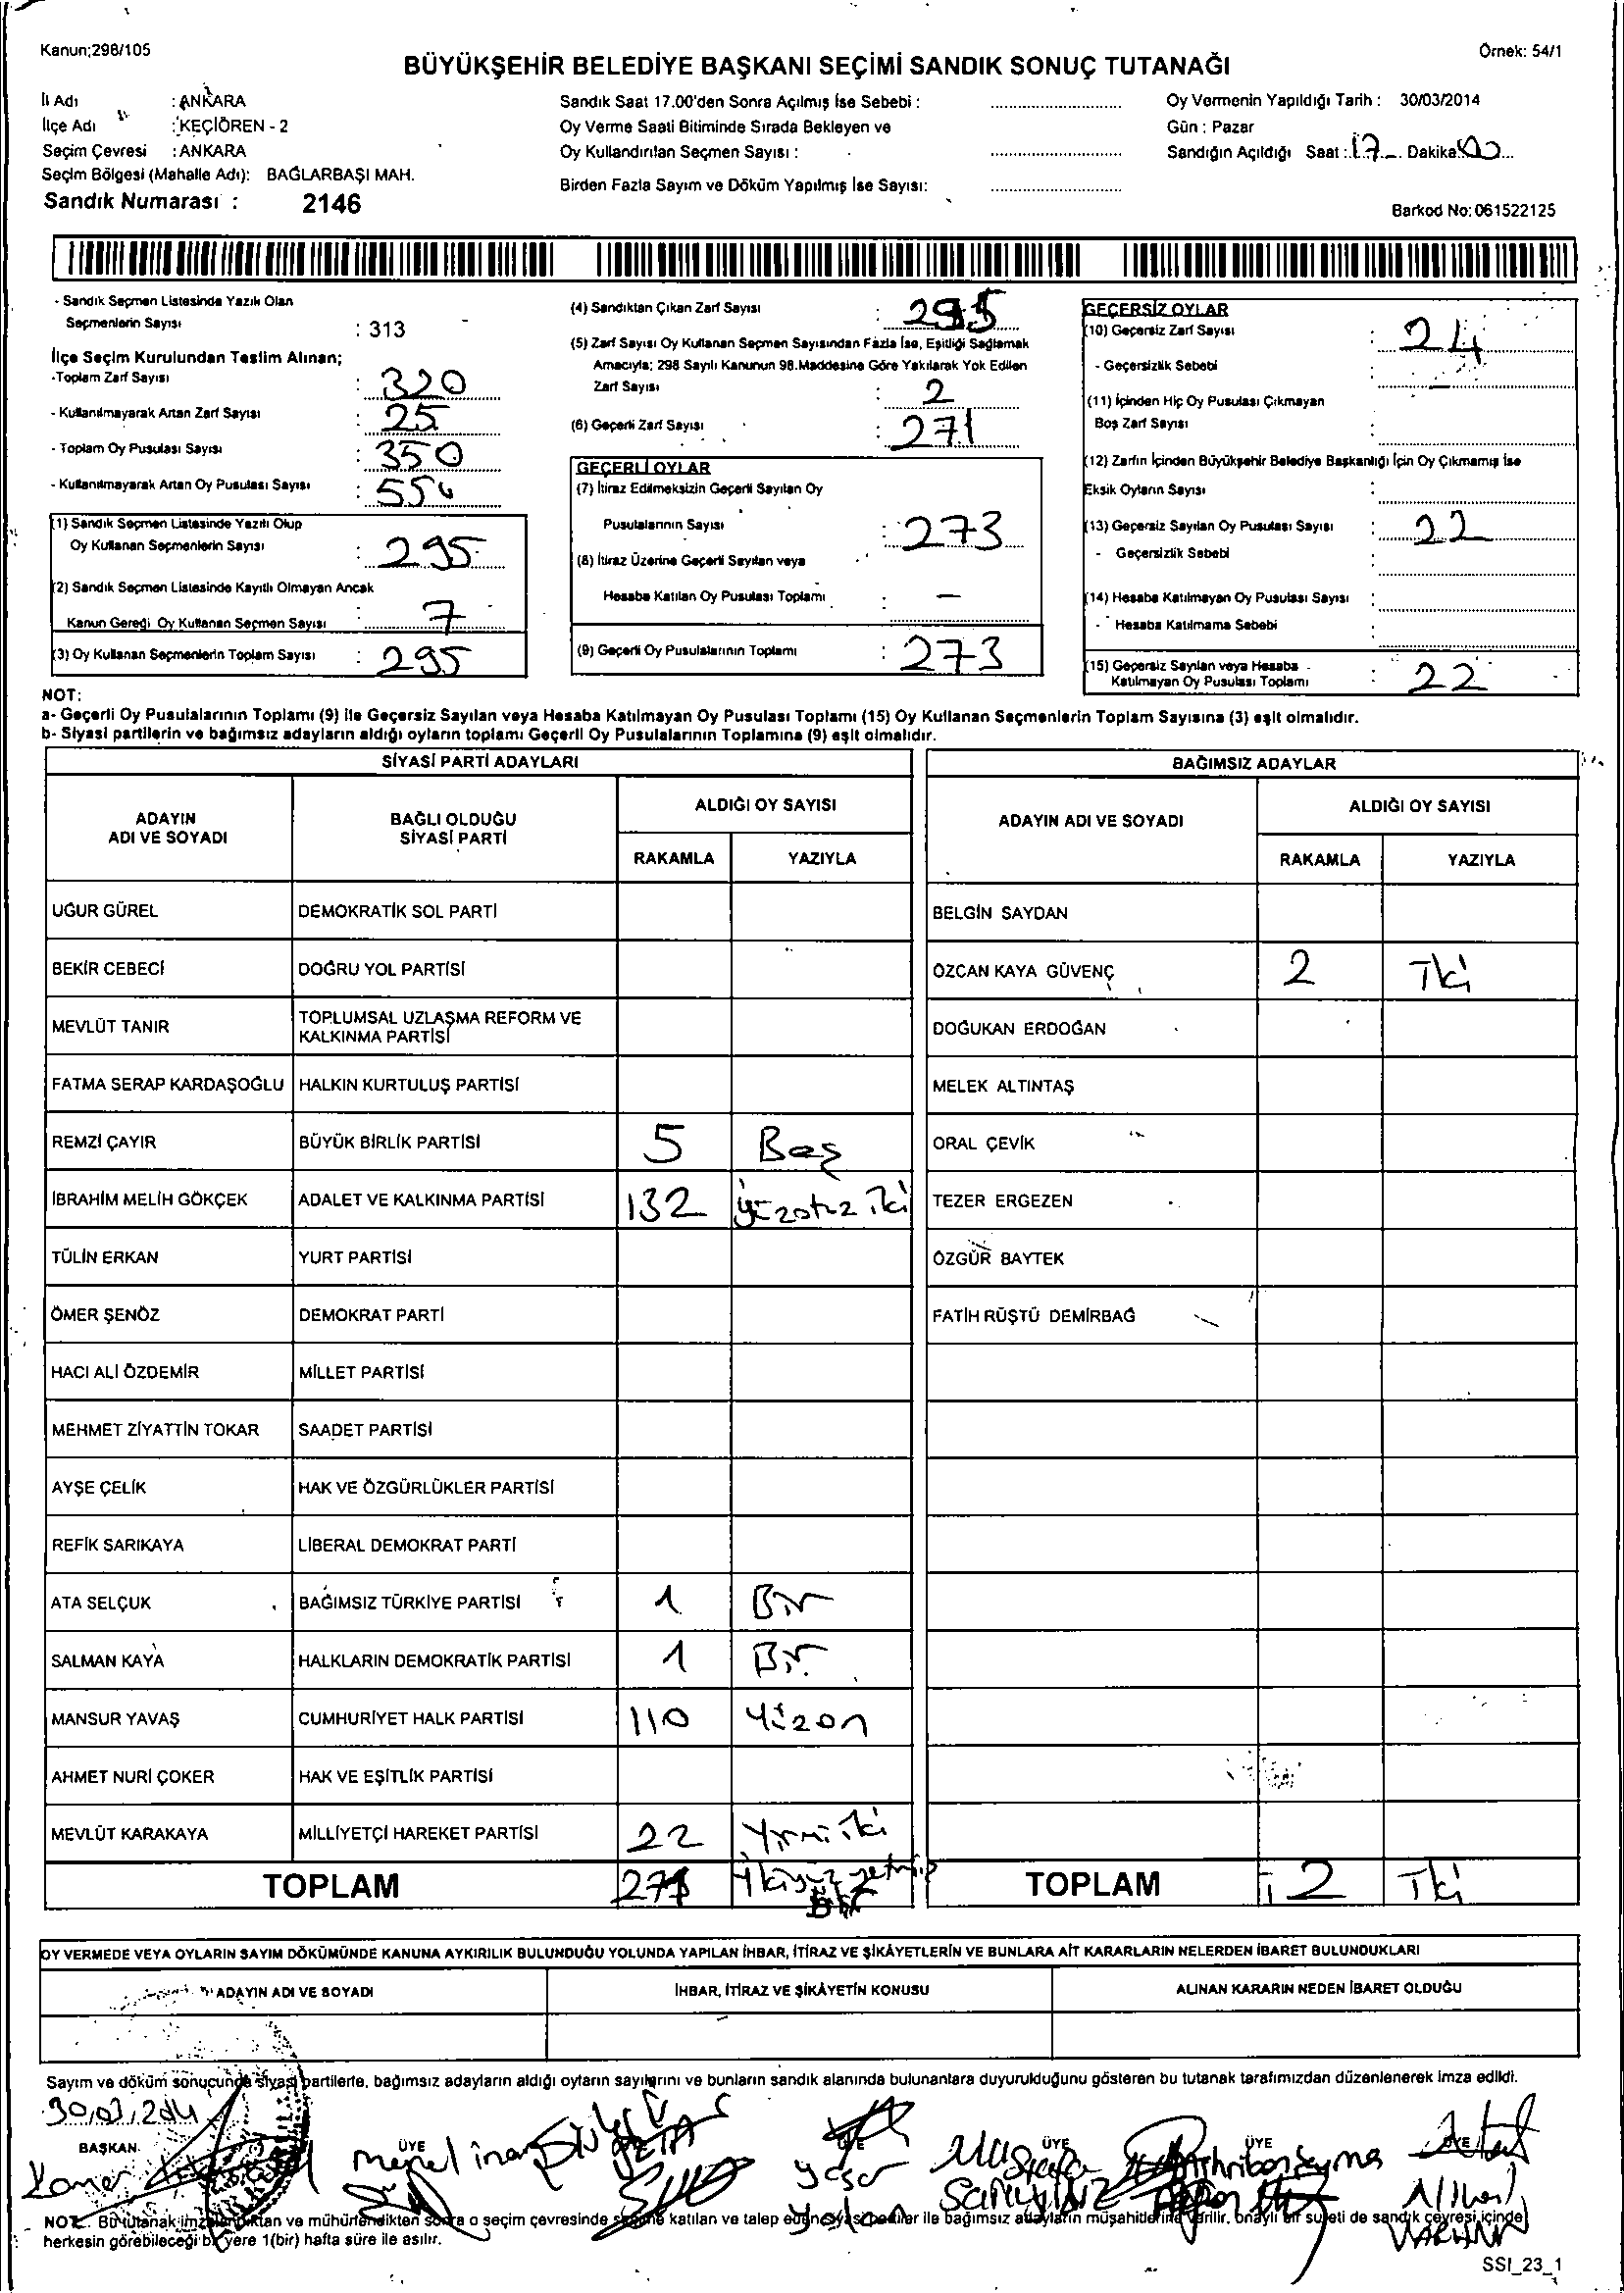 Kanun;298/105
Örnek: 54/1
BÜYÜKŞEHİR BELEDİYE BAŞKANI SEÇİMİ SANDIK SONUÇ TUTANAĞI
İl Adı : ANKARA
İlçe Adı : KEÇİÖREN - 2
Seçim Çevresi : ANKARA
Seçim Bölgesi (Mahalle Adı): BAĞLARBAŞI MAH.
Sandık Numarası : 2146
Sandık Saat 17.00'den Sonra Açılmış İse Sebebi :
Oy Verme Saati Bitiminde Sırada Bekleyen ve
Oy Kullandırılan Seçmen Sayısı :
Birden Fazla Sayım ve Döküm Yapılmış İse Sayısı:
Oy Vermenin Yapıldığı Tarih : 30/03/2014
Gün : Pazar
Sandığın Açıldığı Saat : 17 Dakika 00
Barkod No: 061522125
- Sandık Seçmen Listesinde Yazılı Olan
Seçmenlerin Sayısı : 313
İlçe Seçim Kurulundan Teslim Alınan;
-Toplam Zarf Sayısı : 320
- Kullanılmayarak Artan Zarf Sayısı : 25
- Toplam Oy Pusulası Sayısı : 350
- Kullanılmayarak Artan Oy Pusulası Sayısı :
(1) Sandık Seçmen Listesinde Yazılı Olup
Oy Kullanan Seçmenlerin Sayısı : 295
(2) Sandık Seçmen Listesinde Kayıtlı Olmayan Ancak
Kanun Gereği Oy Kullanan Seçmen Sayısı : 7
(3) Oy Kullanan Seçmenlerin Toplam Sayısı : 295
(4) Sandıktan Çıkan Zarf Sayısı : 295
(5) Zarf Sayısı Oy Kullanan Seçmen Sayısından Fazla İse, Eşitliği Sağlamak
Amacıyla; 298 Sayılı Kanunun 98.Maddesine Göre Yakılarak Yok Edilen
Zarf Sayısı : 2
(6) Geçerli Zarf Sayısı : 271
GEÇERLİ OYLAR
(7) İtiraz Edilmeksizin Geçerli Sayılan Oy
Pusulalarının Sayısı : 273
(8) İtiraz Üzerine Geçerli Sayılan veya
Hesaba Katılan Oy Pusulası Toplamı : -
(9) Geçerli Oy Pusulalarının Toplamı : 273
GEÇERSİZ OYLAR
(10) Geçersiz Zarf Sayısı : 24
- Geçersizlik Sebebi :
(11) İçinden Hiç Oy Pusulası Çıkmayan
Boş Zarf Sayısı :
(12) Zarfın İçinden Büyükşehir Belediye Başkanlığı İçin Oy Çıkmamış İse
Eksik Oyların Sayısı :
(13) Geçersiz Sayılan Oy Pusulası Sayısı : 22
- Geçersizlik Sebebi :
(14) Hesaba Katılmayan Oy Pusulası Sayısı :
- Hesaba Katılmama Sebebi :
(15) Geçersiz Sayılan veya Hesaba
Katılmayan Oy Pusulası Toplamı : 22
NOT:
a- Geçerli Oy Pusulalarının Toplamı (9) ile Geçersiz Sayılan veya Hesaba Katılmayan Oy Pusulası Toplamı (15) Oy Kullanan Seçmenlerin Toplam Sayısına (3) eşit olmalıdır.
b- Siyasi partilerin ve bağımsız adayların aldığı oyların toplamı Geçerli Oy Pusulalarının Toplamına (9) eşit olmalıdır.
SİYASİ PARTİ ADAYLARI
ADAYIN ADI VE SOYADI
BAĞLI OLDUĞU SİYASİ PARTİ
ALDIĞI OY SAYISI
RAKAMLA YAZIYLA
UĞUR GÜREL DEMOKRATİK SOL PARTİ
BEKİR CEBECİ DOĞRU YOL PARTİSİ
MEVLÜT TANIR TOPLUMSAL UZLAŞMA REFORM VE
KALKINMA PARTİSİ
FATMA SERAP KARDAŞOĞLU HALKIN KURTULUŞ PARTİSİ
REMZİ ÇAYIR BÜYÜK BİRLİK PARTİSİ 5 Beş
İBRAHİM MELİH GÖKÇEK ADALET VE KALKINMA PARTİSİ 132 yüzotuz iki
TÜLİN ERKAN YURT PARTİSİ
ÖMER ŞENÖZ DEMOKRAT PARTİ
HACI ALİ ÖZDEMİR MİLLET PARTİSİ
MEHMET ZİYATTİN TOKAR SAADET PARTİSİ
AYŞE ÇELİK HAK VE ÖZGÜRLÜKLER PARTİSİ
REFİK SARIKAYA LİBERAL DEMOKRAT PARTİ
ATA SELÇUK BAĞIMSIZ TÜRKİYE PARTİSİ 1 Bir
SALMAN KAYA HALKLARIN DEMOKRATİK PARTİSİ 1 Bir
MANSUR YAVAŞ CUMHURİYET HALK PARTİSİ 110 Yüzon
AHMET NURİ ÇOKER HAK VE EŞİTLİK PARTİSİ
MEVLÜT KARAKAYA MİLLİYETÇİ HAREKET PARTİSİ 22 Yirmi iki
TOPLAM 271 İkiyüz yetmiş bir
BAĞIMSIZ ADAYLAR
ADAYIN ADI VE SOYADI
ALDIĞI OY SAYISI
RAKAMLA YAZIYLA
BELGİN SAYDAN
ÖZCAN KAYA GÜVENÇ 2 İki
DOĞUKAN ERDOĞAN
MELEK ALTINTAŞ
ORAL ÇEVİK
TEZER ERGEZEN
ÖZGÜR BAYTEK
FATİH RÜŞTÜ DEMİRBAĞ
TOPLAM 2 İki
OY VERMEDE VEYA OYLARIN SAYIM DÖKÜMÜNDE KANUNA AYKIRILIK BULUNDUĞU YOLUNDA YAPILAN İHBAR, İTİRAZ VE ŞİKÂYETLERİN VE BUNLARA AİT KARARLARIN NELERDEN İBARET BULUNDUKLARI
ADAYIN ADI VE SOYADI
İHBAR, İTİRAZ VE ŞİKÂYETİN KONUSU
ALINAN KARARIN NEDEN İBARET OLDUĞU
Sayım ve döküm sonucunda siyasi partilerle, bağımsız adayların aldığı oyların sayılarını ve bunların sandık alanında bulunanlara duyurulduğunu gösteren bu tutanak tarafımızdan düzenlenerek imza edildi.
30.03.2014
BAŞKAN ÜYE ÜYE ÜYE ÜYE
Yaşar
Mustafa
NOT: Bu tutanak imzalandıktan ve mühürlendikten sonra o seçim çevresinde seçime katılan ve talep eden siyasi partiler ile bağımsız adayların müşahitlerine verilir, onaylı bir sureti de sandık çevresi içinde
herkesin görebileceği bir yere 1(bir) hafta süre ile asılır.
SSI_23_1